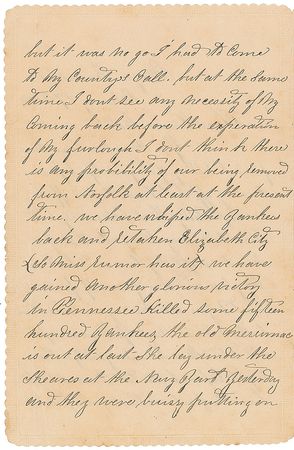 but it was no go I had to Come
to My Countrys Call. but at the same
time I dont see any necesity of My
Coming back before the experation
of My furlough I dont think there
is any probibility of our being removed
from Norfolk at least at the present
time. we have whiped the Yankees
back and retaken Elizabeth City
(So Miss rumor has it) we have
gained another glorious victory
in Pennessee Killed some fifteen
hundred Yankees, the old Merrimac
is out at last She lay under the
Sheares at the Navy Yard Yesterday
and they were buissy putting on